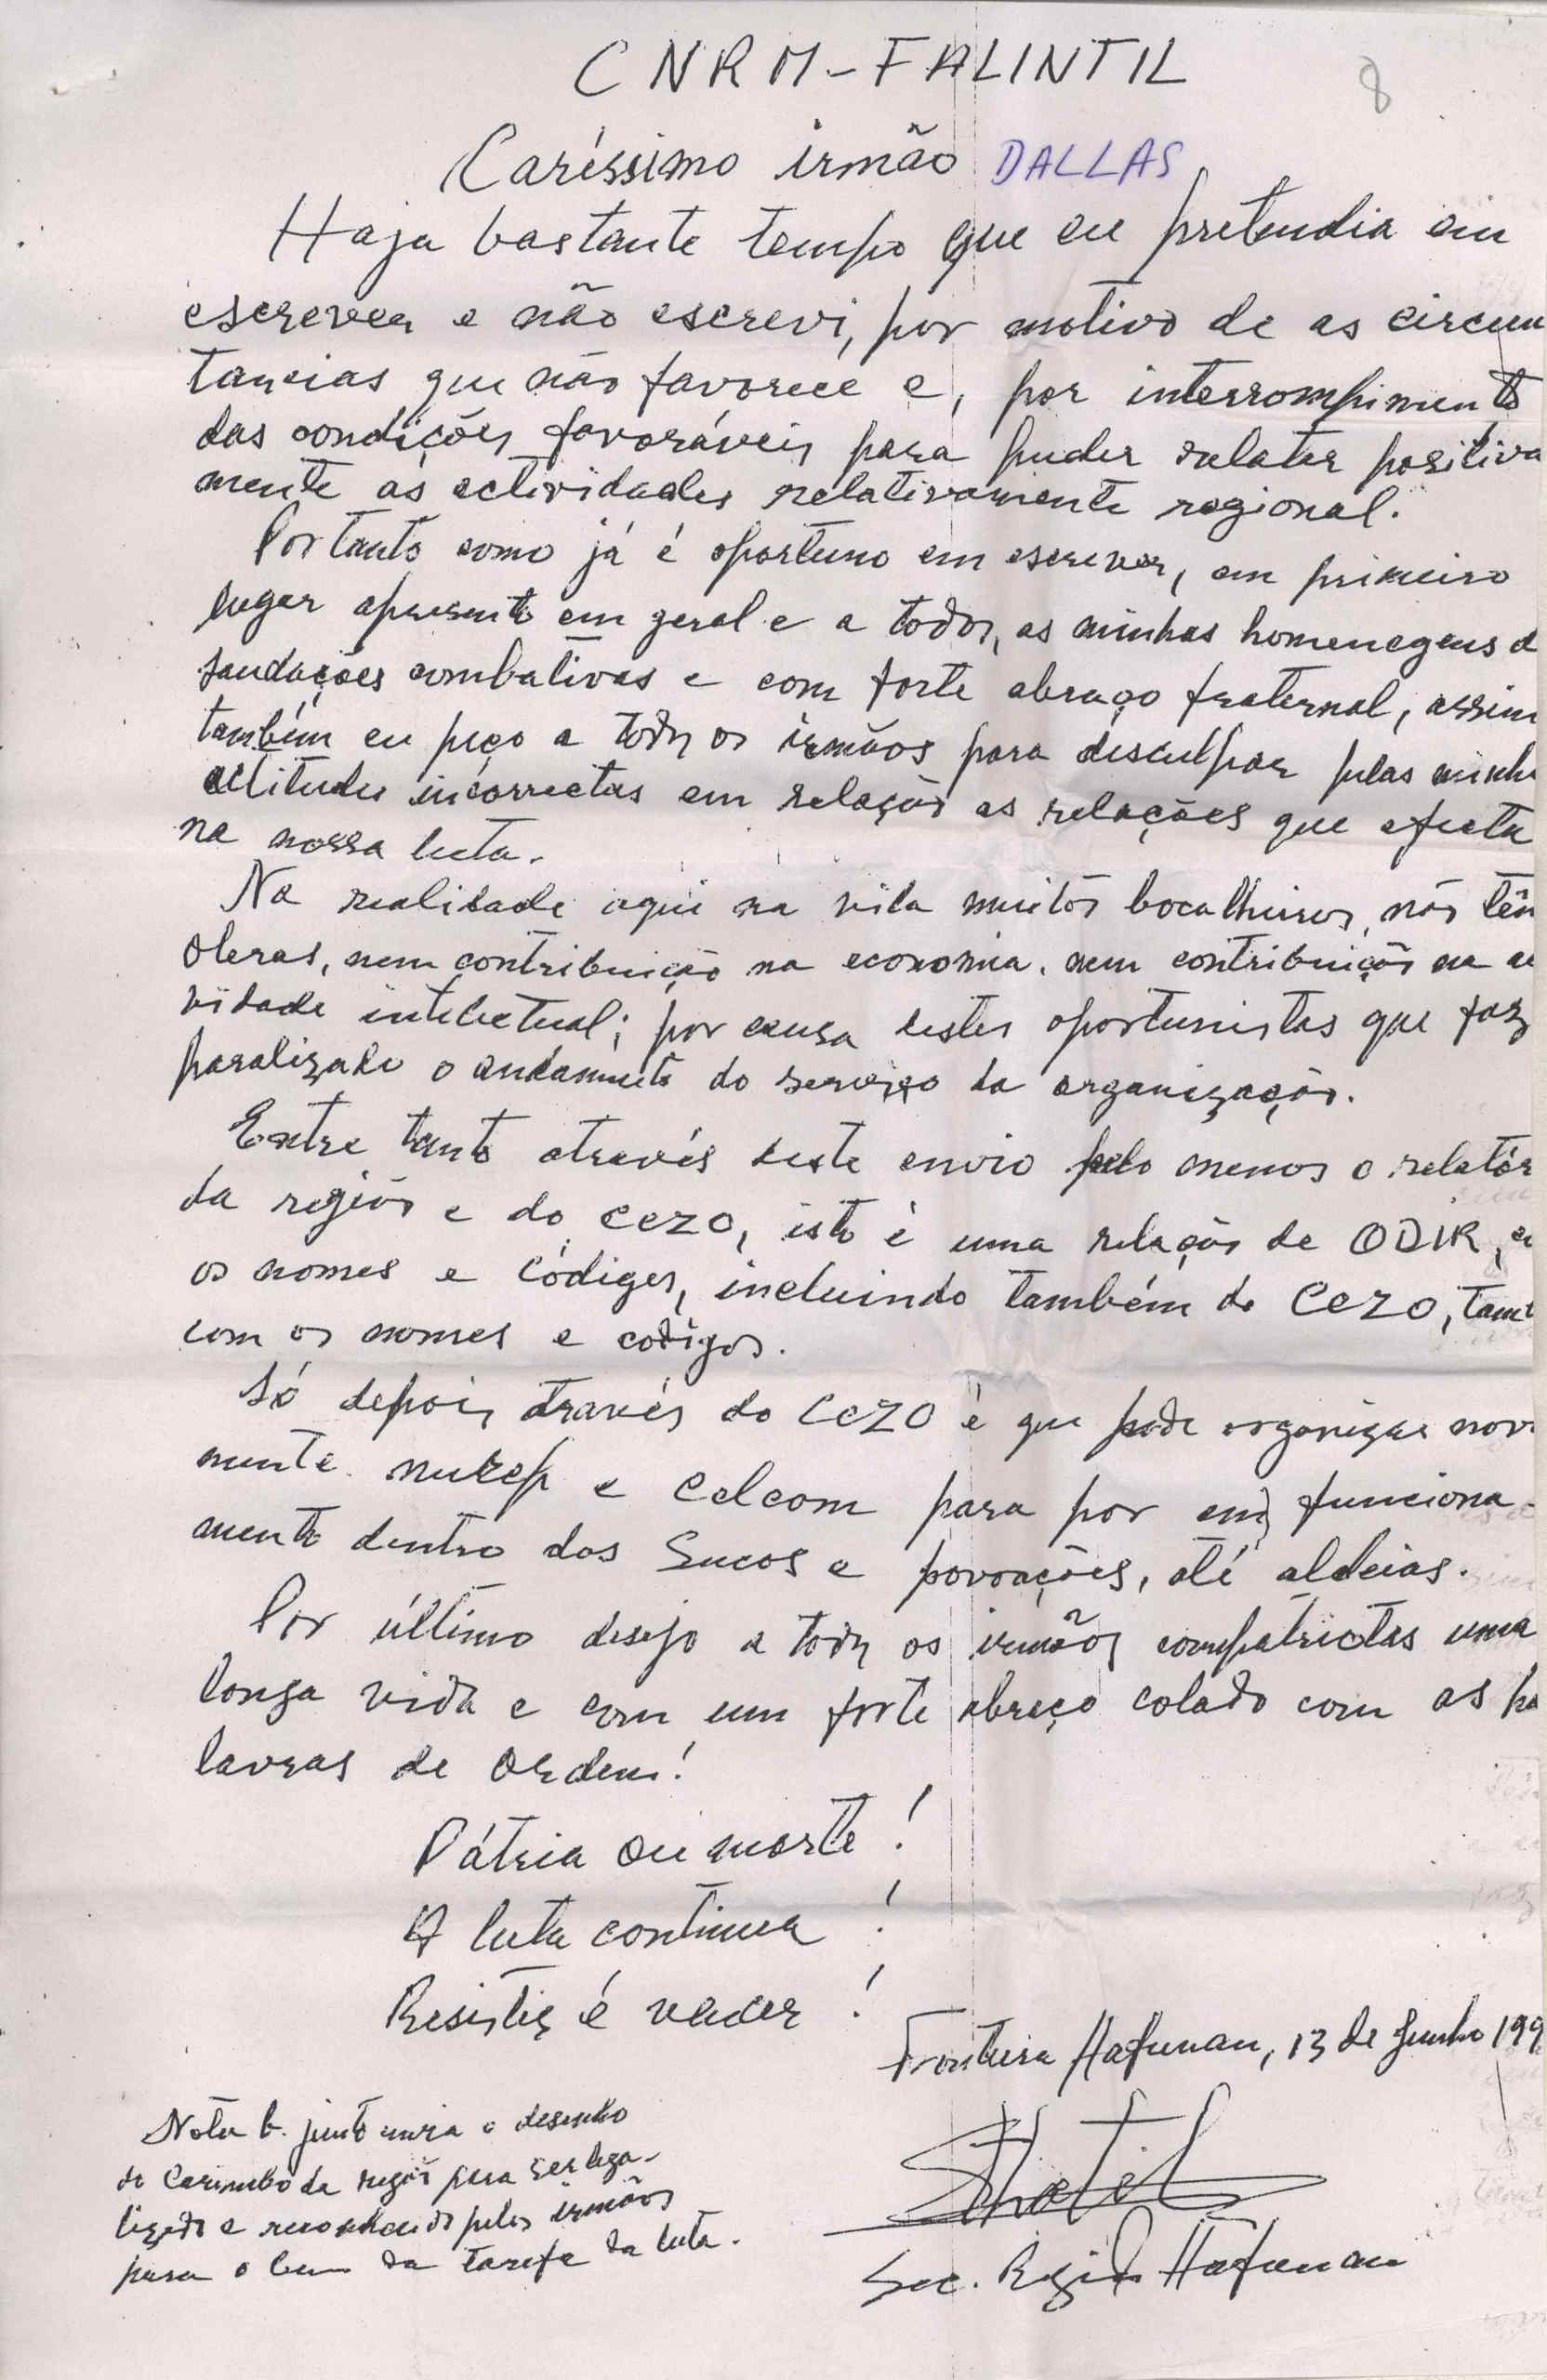 CNRM-FALINTIL
8
Caríssimo irmão DALLAS
Haja bastante tempo que eu pretendia em
escrever e não escrevi, por motivo de as circuns
tancias que não favorece e, por interrompimento
das condições favoráveis para puder relatar positiva
mente as actividades relativamente regional.
Portanto como já é oportuno em escrever, em primeiro
lugar apresento em geral e a todos, as minhas homenagens d
saudações combativas e com forte abraço fraternal, assim
também eu peço a todos os irmãos para desculpar pelas minha
actitudes incorrectas em relação as relações que afecta
na nossa luta.
Na realidade aqui na vila muitos bocalheiros, não têm
obras, nem contribuição na economia, nem contribuição na ac
vidade intelectual; por causa destes oportunistas que faz
paralizado o andamento do serviço da organização.
Entre tanto através deste envio pelo menos o relatór
da região e do CEZO, isto é uma relação de ODIR, c
os nomes e códigos, incluindo também do CEZO, tamb
com os nomes e codigos.
Só depois através do CEZO é que pode organizar nova
mente nurep e Celcom para por em funciona-
mento dentro dos Sucos e povoações, até aldeias.
Por último desejo a todos os irmãos compatriotas uma
longa vida e com um forte abraço colado com as pa
lavras de ordem!
Pátria ou morte!
A luta continua!
Resistir é vencer!
Fronteira Hafunan, 13 de Junho 199
Sec. Região Hafunan
Nota b. junto envia o desenho
do Carimbo da região para ser lega-
lizado e reconhecido pelos irmãos
para o bem da tarefa da luta.